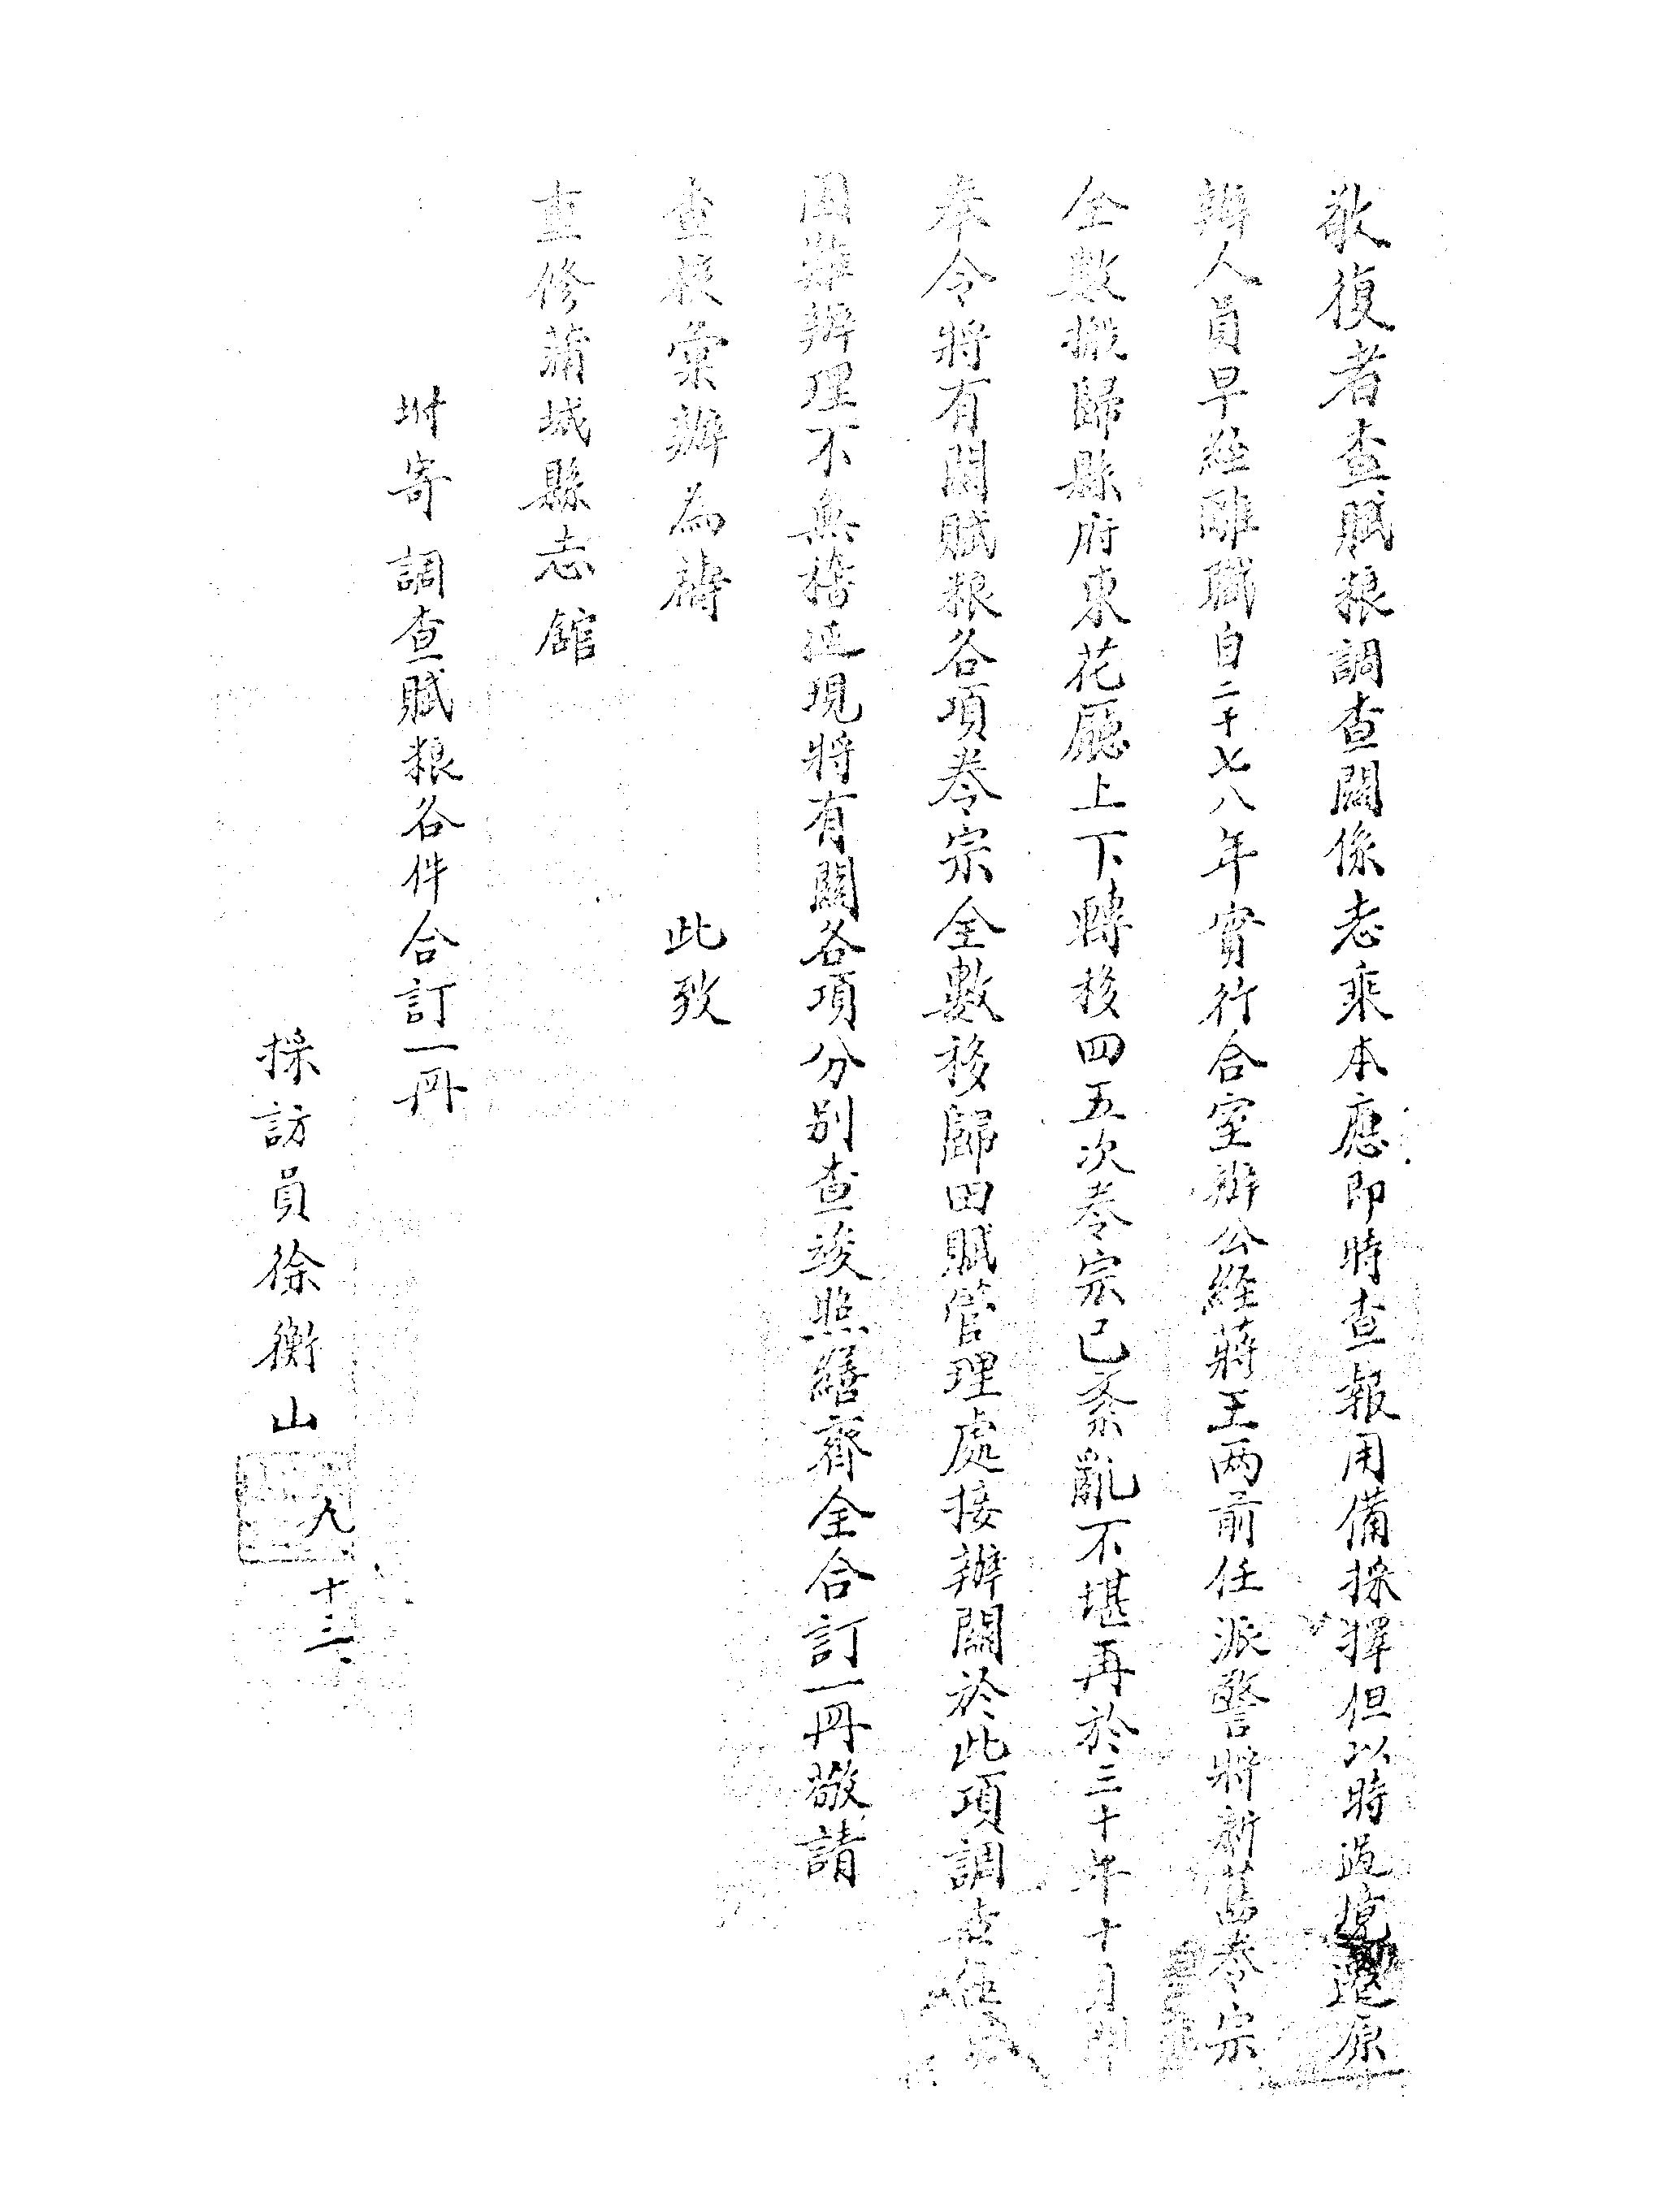 敬復者查賦粮調查關係志乘本應即時查報用備採擇但以時過境遷原
辦人員早經離職自二十七八年實行合室辦公經蔣王两前任派警將新舊卷宗
全數搬歸縣府東花廳上下轉移四五次卷宗已紊亂不堪再於三十年十月間
奉令將有關賦粮各項卷宗全數移歸田賦管理處接辦關於此項調查
困難辦理不無稽延現將有關各項分別查竣照繕齊全合訂一冊敬請
查核彙辦為禱 此致
重修蒲城縣志舘
坿寄調查賦粮各件合訂一冊
採訪員徐衡山
九、十三、